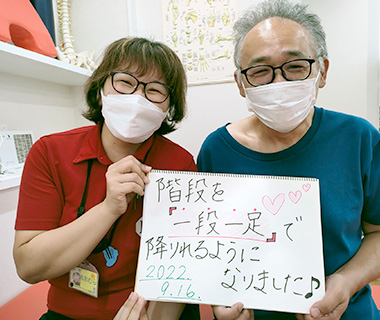 階段を
「一段一定」で
降りれるように
なりました♪
2022.
9.16.